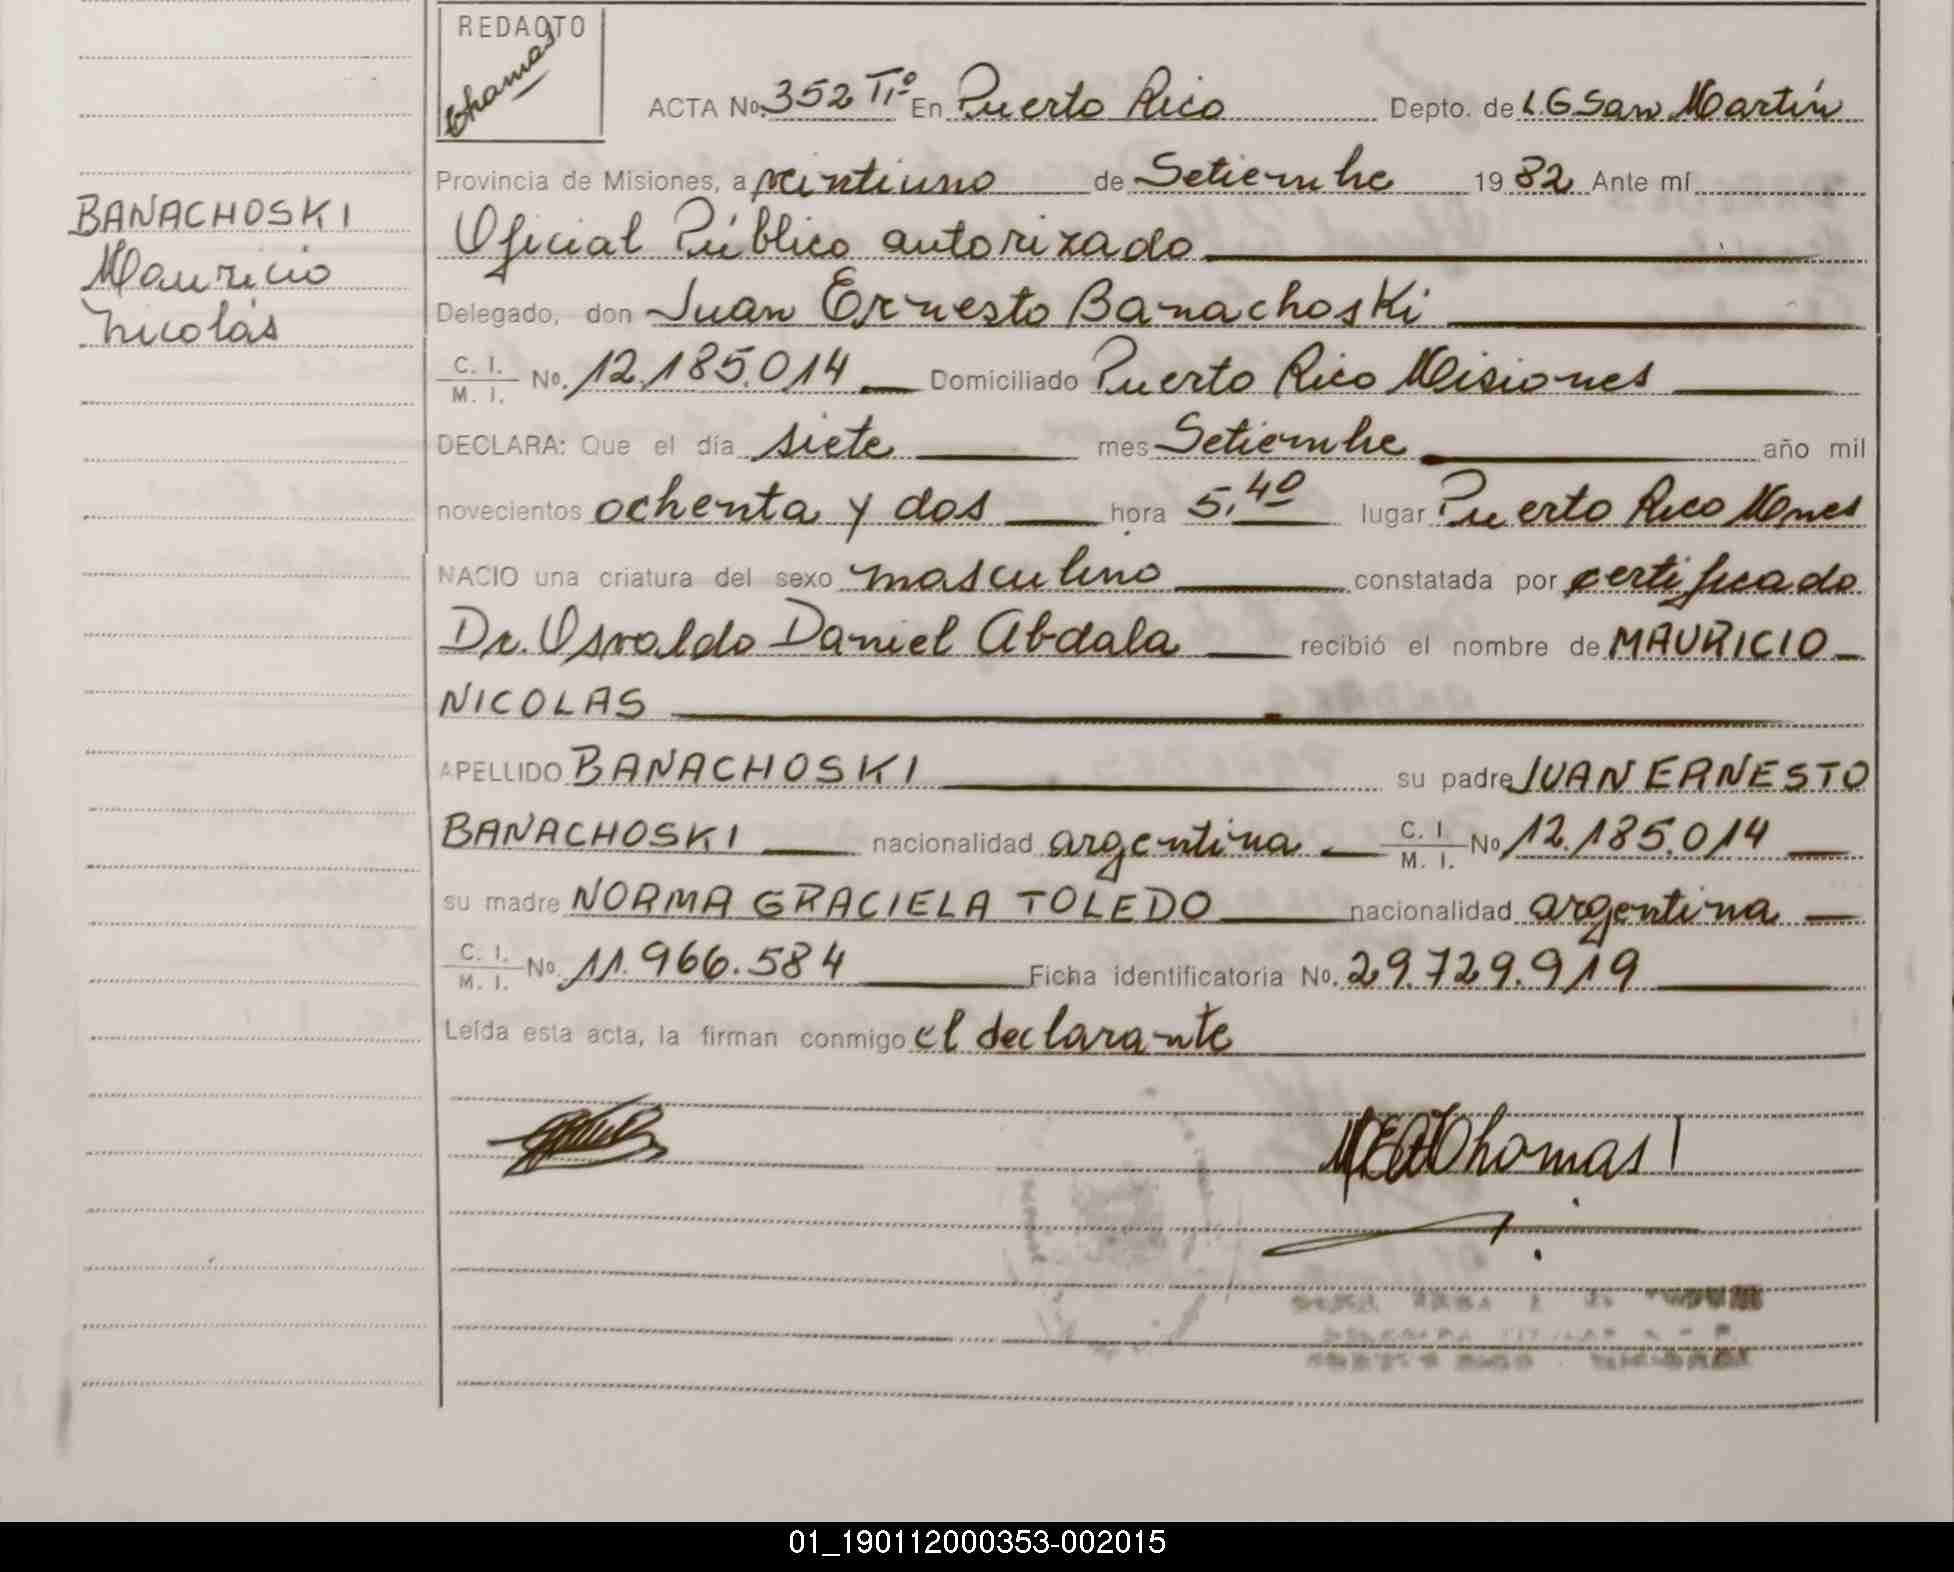 REDACTO
Thomas
ACTA No. 352 Tº En Puerto Rico Depto. de L.G San Martín
Provincia de Misiones, a veintiuno de Setiembre 1982 Ante mí
BANACHOSKI
Mauricio
Nicolás
Oficial Público autorizado
Delegado, don Juan Ernesto Banachoski
C. I. / M. I. No. 12.185.014 Domiciliado Puerto Rico Misiones
DECLARA: Que el día siete mes Setiembre año mil
novecientos ochenta y dos hora 5,40 lugar Puerto Rico Mnes
NACIO una criatura del sexo masculino constatada por certificado
Dr. Osvaldo Daniel Abdala recibió el nombre de MAURICIO
NICOLAS
APELLIDO BANACHOSKI su padre JUAN ERNESTO
BANACHOSKI nacionalidad argentina C. I. / M. I. No 12.185.014
su madre NORMA GRACIELA TOLEDO nacionalidad argentina
C. I. / M. I. No. 11.966.584 Ficha identificatoria No. 29.729.919
Leída esta acta, la firman conmigo el declarante
Thomas
01_190112000353-002015